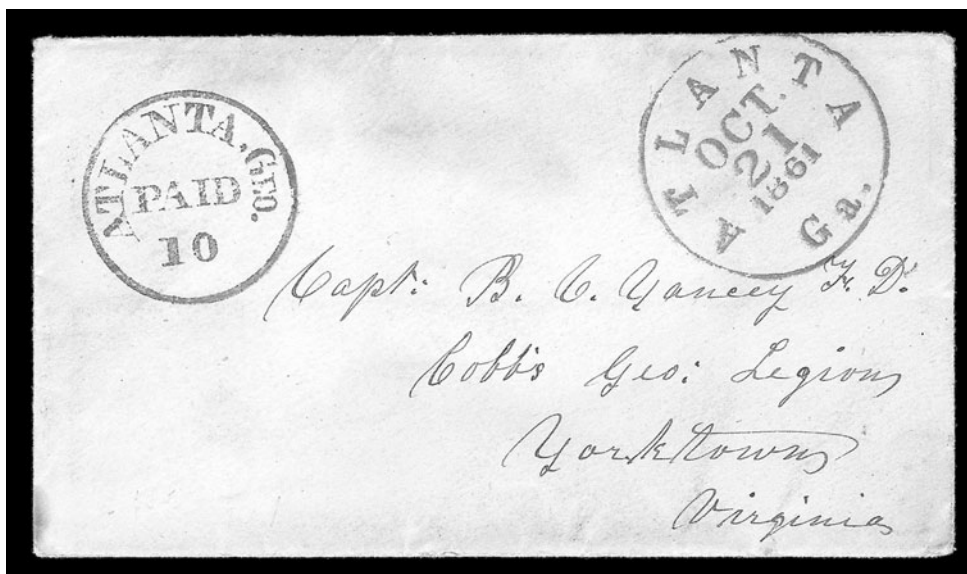 ATLANTA, GEO.
PAID
10
ATLANTA Ga.
OCT.
21
1861
Capt: B. C. Yancey F. D.
Cobb's Geo: Legion
Yorktown
Virginia